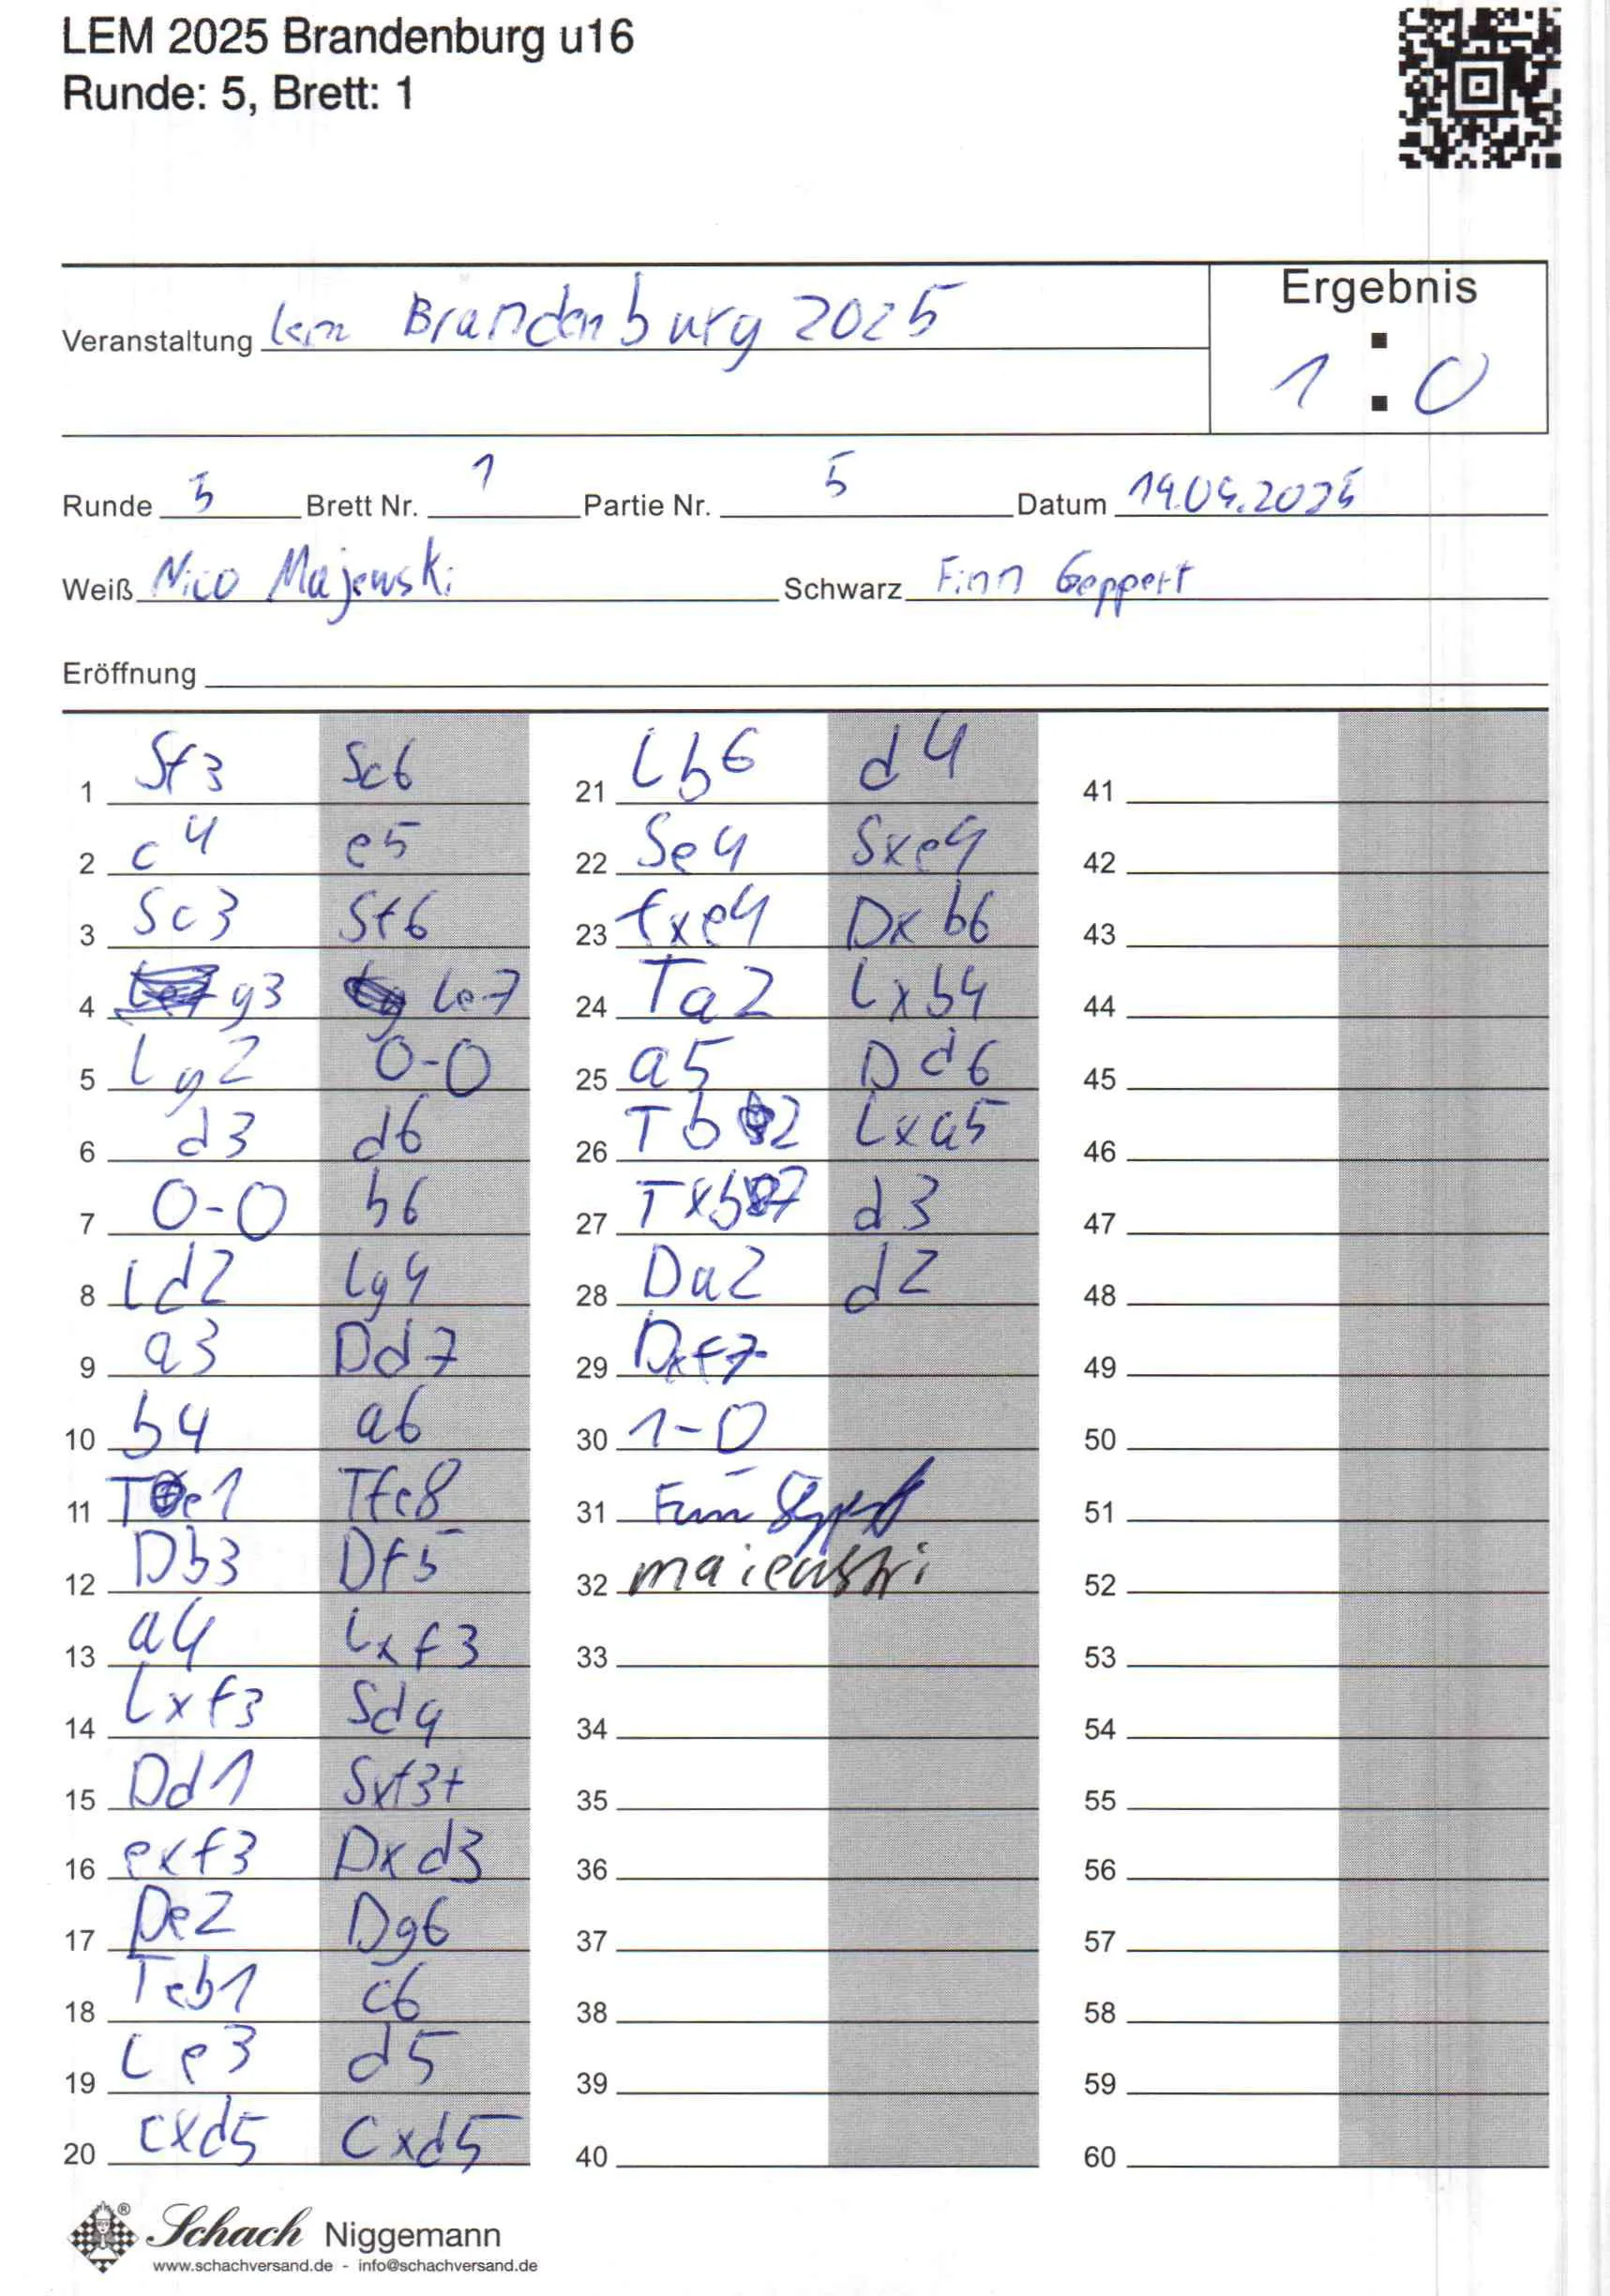 LEM 2025 Brandenburg u16
Runde: 5, Brett: 1
Veranstaltung lem Brandenburg 2025
Ergebnis
1 : 0
Runde 5 Brett Nr. 1 Partie Nr. 5 Datum 19.04.2025
Weiß Nico Majewski Schwarz Finn Geppert
Eröffnung
1 Sf3 Sc6
2 c4 e5
3 Sc3 Sf6
4 g3 Le7
5 Lg2 0-0
6 d3 d6
7 0-0 h6
8 Ld2 Lg4
9 a3 Dd7
10 b4 a6
11 Te1 Tfe8
12 Db3 Df5
13 a4 Lxf3
14 Lxf3 Sd4
15 Dd1 Sxf3+
16 exf3 Dxd3
17 De2 Dg6
18 Teb1 c6
19 Le3 d5
20 cxd5 cxd5
21 Lb6 d4
22 Se4 Sxe4
23 fxe4 Dxb6
24 Ta2 Lxb4
25 a5 Dd6
26 Tb2 Lxa5
27 Txb7 d3
28 Da2 d2
29 Dxf7
30 1-0
31 Finn Geppert
32 majewski
33
34
35
36
37
38
39
40
41
42
43
44
45
46
47
48
49
50
51
52
53
54
55
56
57
58
59
60
Schach Niggemann
www.schachversand.de - info@schachversand.de